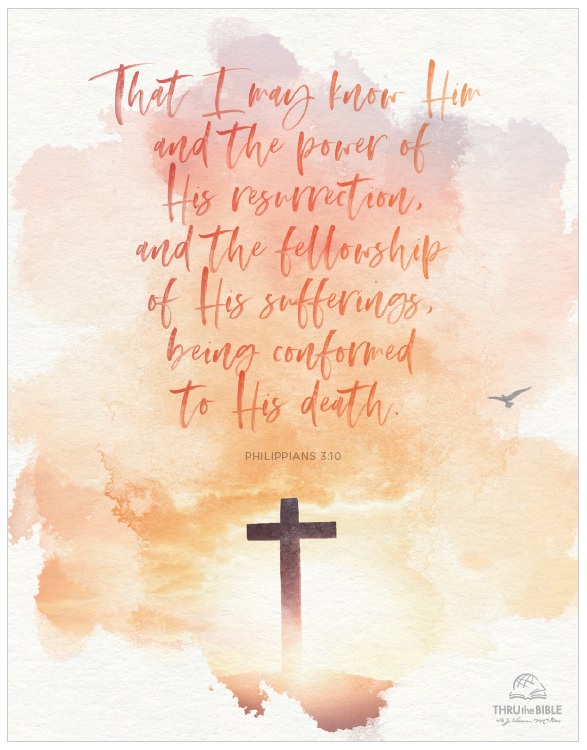 That I may know Him
and the power of
His resurrection,
and the fellowship
of His sufferings,
being conformed
to His death.
PHILIPPIANS 3:10
THRU the BIBLE
with J. Vernon McGee